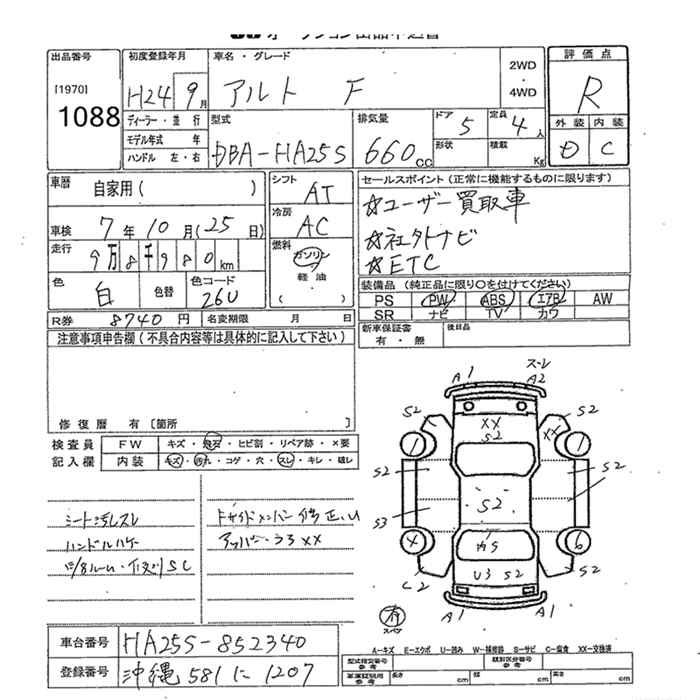 出品番号
[1970]
1088
初度登録年月
H24 9月
車名・グレード
アルト F
2WD
・
4WD
評価点
R
外装 内装
D C
ディーラー・並行
モデル年式 年
ハンドル 左・右
型式
DBA-HA25S
排気量
660cc
ドア 5
定員 4人
形状
積載 Kg
車暦
自家用( )
車検 7年10月(25日)
走行 9万8千980km
色 白
色替
色コード 26U
シフト AT
冷房 AC
燃料
ガソリン
軽油
( )
セールスポイント(正常に機能するものに限ります)
☆ユーザー買取車
☆社外ナビ
☆ETC
装備品(純正品に限り〇を付けてください)
PS PW ABS エアB AW
SR ナビ TV カワ
R券 8740円
名変期限 月 日
新車保証書
有・無
後日品
注意事項申告欄(不具合内容等は具体的に記入して下さい)
修復暦 有[箇所 ]
検査員
記入欄
FW キズ・飛石・ヒビ割・リペア跡・×要
内装 キズ・汚れ・コゲ・穴・スレ・キレ・破レ
シート汚レスレ
ハンドルハゲ
A1
スレ
A2
S2 XX S2 S2
XX
1 1
S2 S2
S3 S2 S2
4 内S 6
C2 U3 S2 S2
A1 A1
有
スペア
A-キズ E-エクボ U-凹み W-補修跡 S-サビ C-腐食 XX-交換済
車台番号 HA25S-852340
登録番号 沖縄 581 に 1207
型式指定番号
参考
類別区分番号
参考
車庫証明用
参考
長さ cm
幅 cm
高さ cm